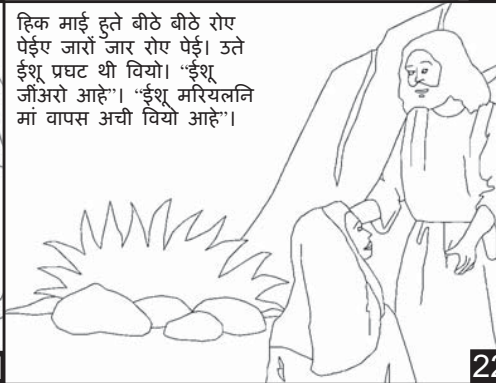 हिक माई हुते बीठे बीठे रोए
पेईए जारों जार रोए पेई। उते
ईशू प्रघट थी वियो। “ईशू
जींअरो आहे”। “ईशू मरियलनि
मां वापस अची वियो आहे”।